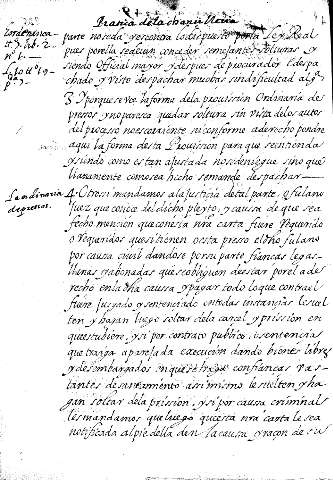 Pratica de la chancilleria
parte no se da y es contra lo dispuesto por la ley Real
pues por ella se deven conceder semejantes solturas y
siendo official mayor y despues de procurador le despa
chado, y visto despachar muchas sin dificultad alg.ª
3 Y porque se vee la forma de la provission Ordinaria de
presos, y no parezca que dar soltura sin vista de los autos
del proceso no es conveniente ni conforme a derecho pondre
aqui la forma desta Provission para que se entienda
y siendo como es tan ajustada no se deniegue sino que
llanamente como se a hecho se mande despachar
La ordinaria
de presos.
4 Otrossi mandamos a la justicia de tal parte, o fulano
Juez que conoce del dicho pleyto, y caussa de que sea
fecho mencion que con esta nra carta fuere requerido
o requeridos que si tienen en esta presso el dho fulano
por caussa civil dandose por su parte fianças legas
llanas y abonadas que se obliguen de estar por el a de
recho en la dha caussa y pagar todo lo que contra el
fuere juzgado o sentenciado en todas instancias le suel
ten y hagan luego soltar de la carcel y prission en
que estubiere, y si por contrato publico, i sentencias
que trayga aparejada execucion dando bienes libres
y desembargados en que se trabe con fianças vas
tantes de saneamiento asimismo le suelten y ha
gan soltar de la prission, y si por caussa criminal
les mandamos que luego que esta nra carta le sea
notificada al pie della den la caussa y raçon de su